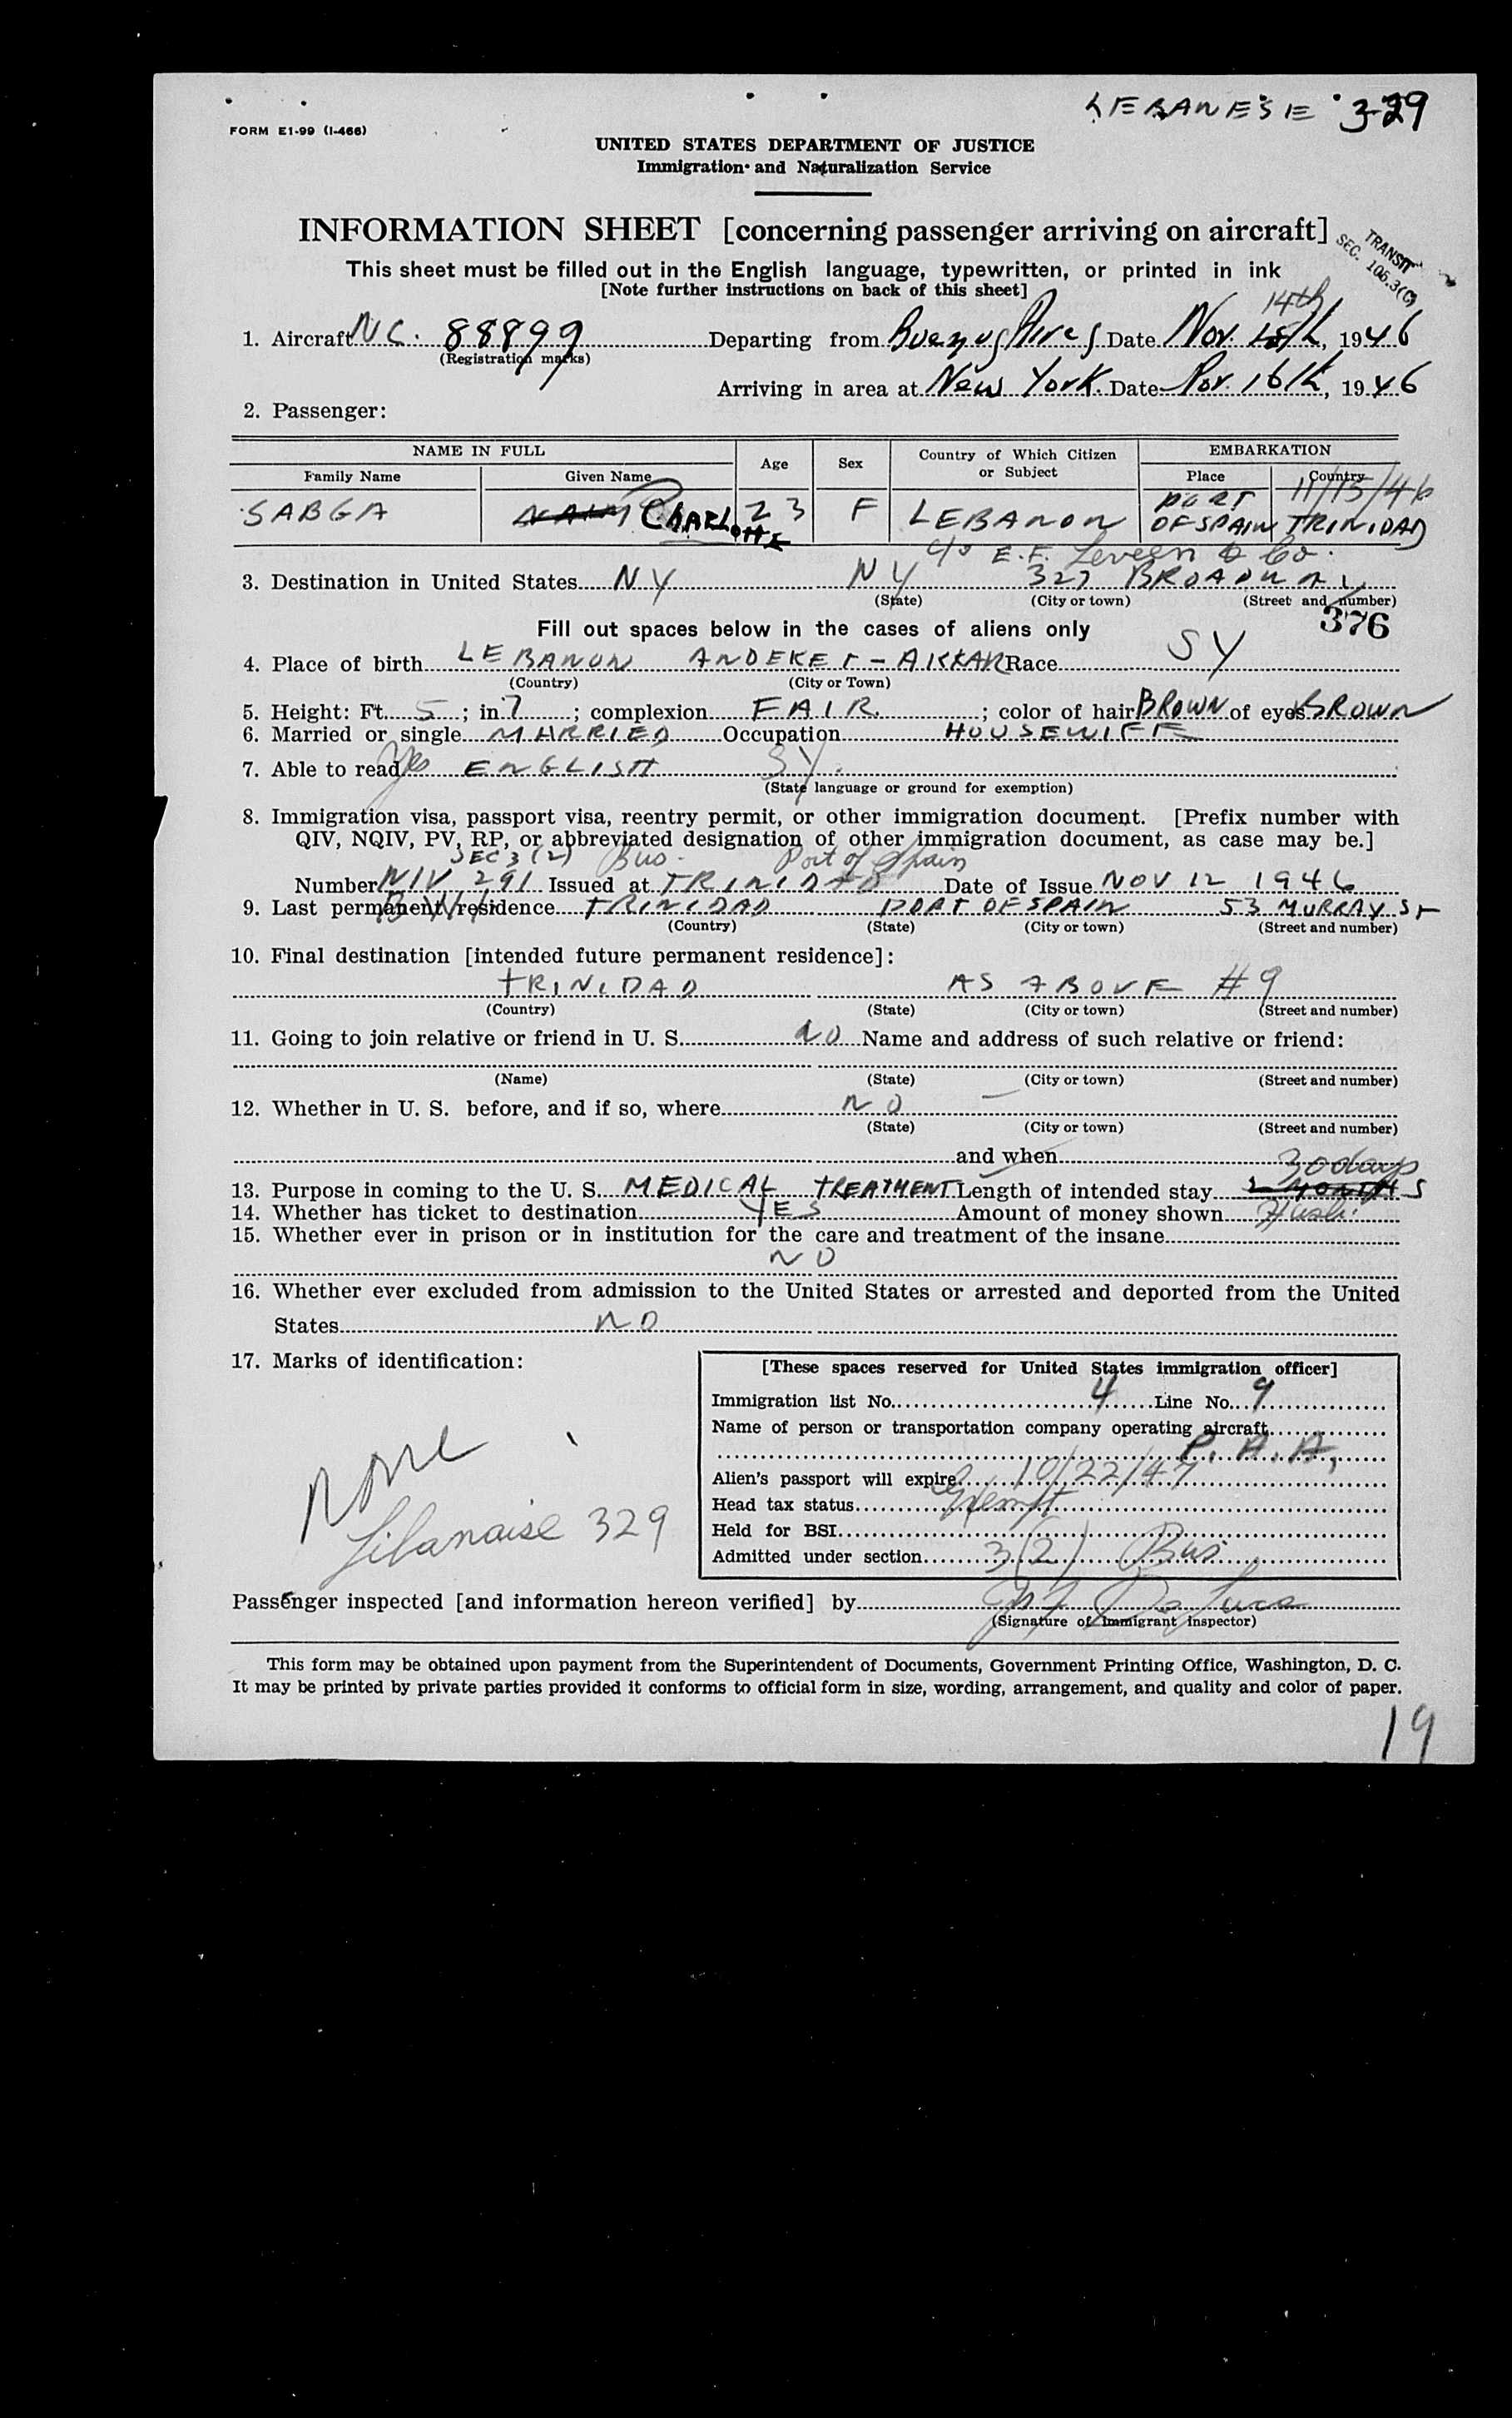 LEBANESE 329
FORM E1-99 (I-466)
UNITED STATES DEPARTMENT OF JUSTICE
Immigration and Naturalization Service
INFORMATION SHEET [concerning passenger arriving on aircraft]
TRANSIT
SEC. 105.3(C)
This sheet must be filled out in the English language, typewritten, or printed in ink
[Note further instructions on back of this sheet]
14th
1. Aircraft NC. 88899 Departing from Buenos Aires Date Nov. 1946
(Registration marks)
Arriving in area at New York. Date Nov. 16th, 1946
2. Passenger:
NAME IN FULL Age Sex Country of Which Citizen or Subject EMBARKATION
Family Name Given Name Place Country
11/15/46
SABGA CHARLOTTE 23 F LEBANON PORT OF SPAIN TRINIDAD
c/o E.F. Leveen & Co.
3. Destination in United States NY NY 327 BROADWAY
(State) (City or town) (Street and number)
Fill out spaces below in the cases of aliens only 376
4. Place of birth LEBANON ANDEKET - AKKAR Race SY
(Country) (City or Town)
5. Height: Ft. 5; in. 7; complexion FAIR; color of hair BROWN of eyes BROWN
6. Married or single MARRIED Occupation HOUSEWIFE
7. Able to read Yes ENGLISH SY.
(State language or ground for exemption)
8. Immigration visa, passport visa, reentry permit, or other immigration document. [Prefix number with
QIV, NQIV, PV, RP, or abbreviated designation of other immigration document, as case may be.]
SEC 3 (2) Bus. Port of Spain
Number NIV 291 Issued at TRINIDAD Date of Issue NOV 12 1946
B.W.I.
9. Last permanent residence TRINIDAD PORT OF SPAIN 53 MURRAY St
(Country) (State) (City or town) (Street and number)
10. Final destination [intended future permanent residence]:
TRINIDAD AS ABOVE #9
(Country) (State) (City or town) (Street and number)
11. Going to join relative or friend in U. S. NO Name and address of such relative or friend:
(Name) (State) (City or town) (Street and number)
12. Whether in U. S. before, and if so, where NO —
(State) (City or town) (Street and number)
and when
30 days
13. Purpose in coming to the U. S. MEDICAL TREATMENT Length of intended stay 2 MONTHS
14. Whether has ticket to destination YES Amount of money shown
15. Whether ever in prison or in institution for the care and treatment of the insane
NO
16. Whether ever excluded from admission to the United States or arrested and deported from the United
States NO
17. Marks of identification:
None
Libanaise 329
[These spaces reserved for United States immigration officer]
Immigration list No. 4 Line No. 9
Name of person or transportation company operating aircraft
P.A.A,
Alien's passport will expire 10/22/47
Head tax status Exempt
Held for BSI
Admitted under section 3(2) Bus
Passenger inspected [and information hereon verified] by
(Signature of Immigrant Inspector)
This form may be obtained upon payment from the Superintendent of Documents, Government Printing Office, Washington, D. C.
It may be printed by private parties provided it conforms to official form in size, wording, arrangement, and quality and color of paper.
19